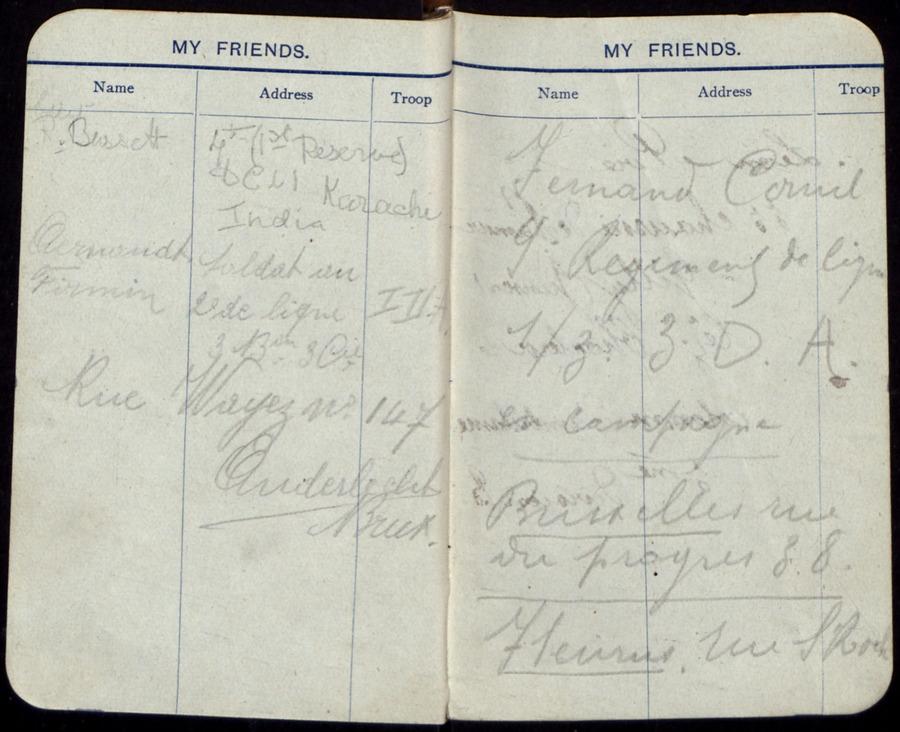 MY FRIENDS.
Name Address Troop
P. Bissett 4th (1st Reserve)
DCLI Karachi
India
Armandt Soldat au
Firmin 2e de ligne I II
3 Bon 3 Cie
Rue Wayez no 147
Anderlecht
Brux.
MY FRIENDS.
Name Address Troop
Fernand Cornil
Regiment de ligne
3 D. A.
campagne
Bruxelles rue
du progres 38.
Fleurus, rue S Roch